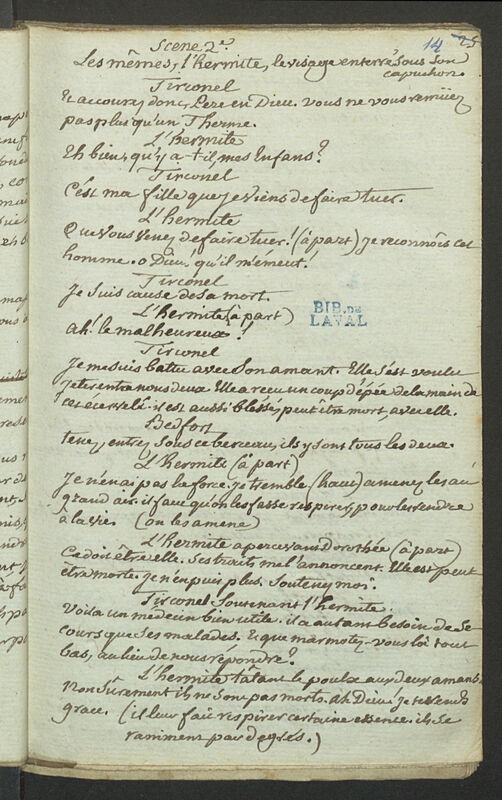 14 25
Scene 2e.
Les mêmes, l'hermite, le visage enterré sous son
capuchon.
Tirconel
Et accourez donc, Pere en Dieu. vous ne vous remüez
pas plus qu'un Therme.
L'hermite
Eh bien, qu'y a-t-il, mes Enfans?
Tirconel
C'est ma fille que je viens de faire tuer.
L'hermite
Que vous venez de faire tuer! (à part) je reconnois cet
homme. o Dieu! qu'il m'émeut!
Tirconel
Je suis cause de sa mort.
L'hermite (à part)
ah! le malheureux!
BIB. DE
LAVAL
Tirconel
Je me suis battu avec son amant. Elle s'est voulu
jeter entre nous deux. Elle a recu un coup d'épée de la main de
cet écervelé. il est aussi blessé, peut etre mort, avec elle.
Bedfort
tenez, entrez sous ce berceau, ils y sont tous les deux.
L'hermite (à part)
Je n'en ai pas la force. je tremble (haut) amenez les au
grand air. il faut qu'on les fasse respirer, pour les rendre
à la vie. (on les amene)
L'hermite apercevant Dorothée (à part)
Ce doit être elle. Ses traits me l'annoncent. Elle est peut
être morte. je n'en puis plus. Soutenez moi.
Tirconel soutenant l'hermite.
Voila un medecin bien utile. il a autant besoin de se
cours que ses malades. Et que marmotez-vous là tout
bas, au lieu de nous répondre?
L'hermite tâtant le poulx aux deux amans.
Non sûrement ils ne sont pas morts. ah Dieu! je te rends
grace. (il leur fait respirer certaine essence. ils se
raniment par degrés.)